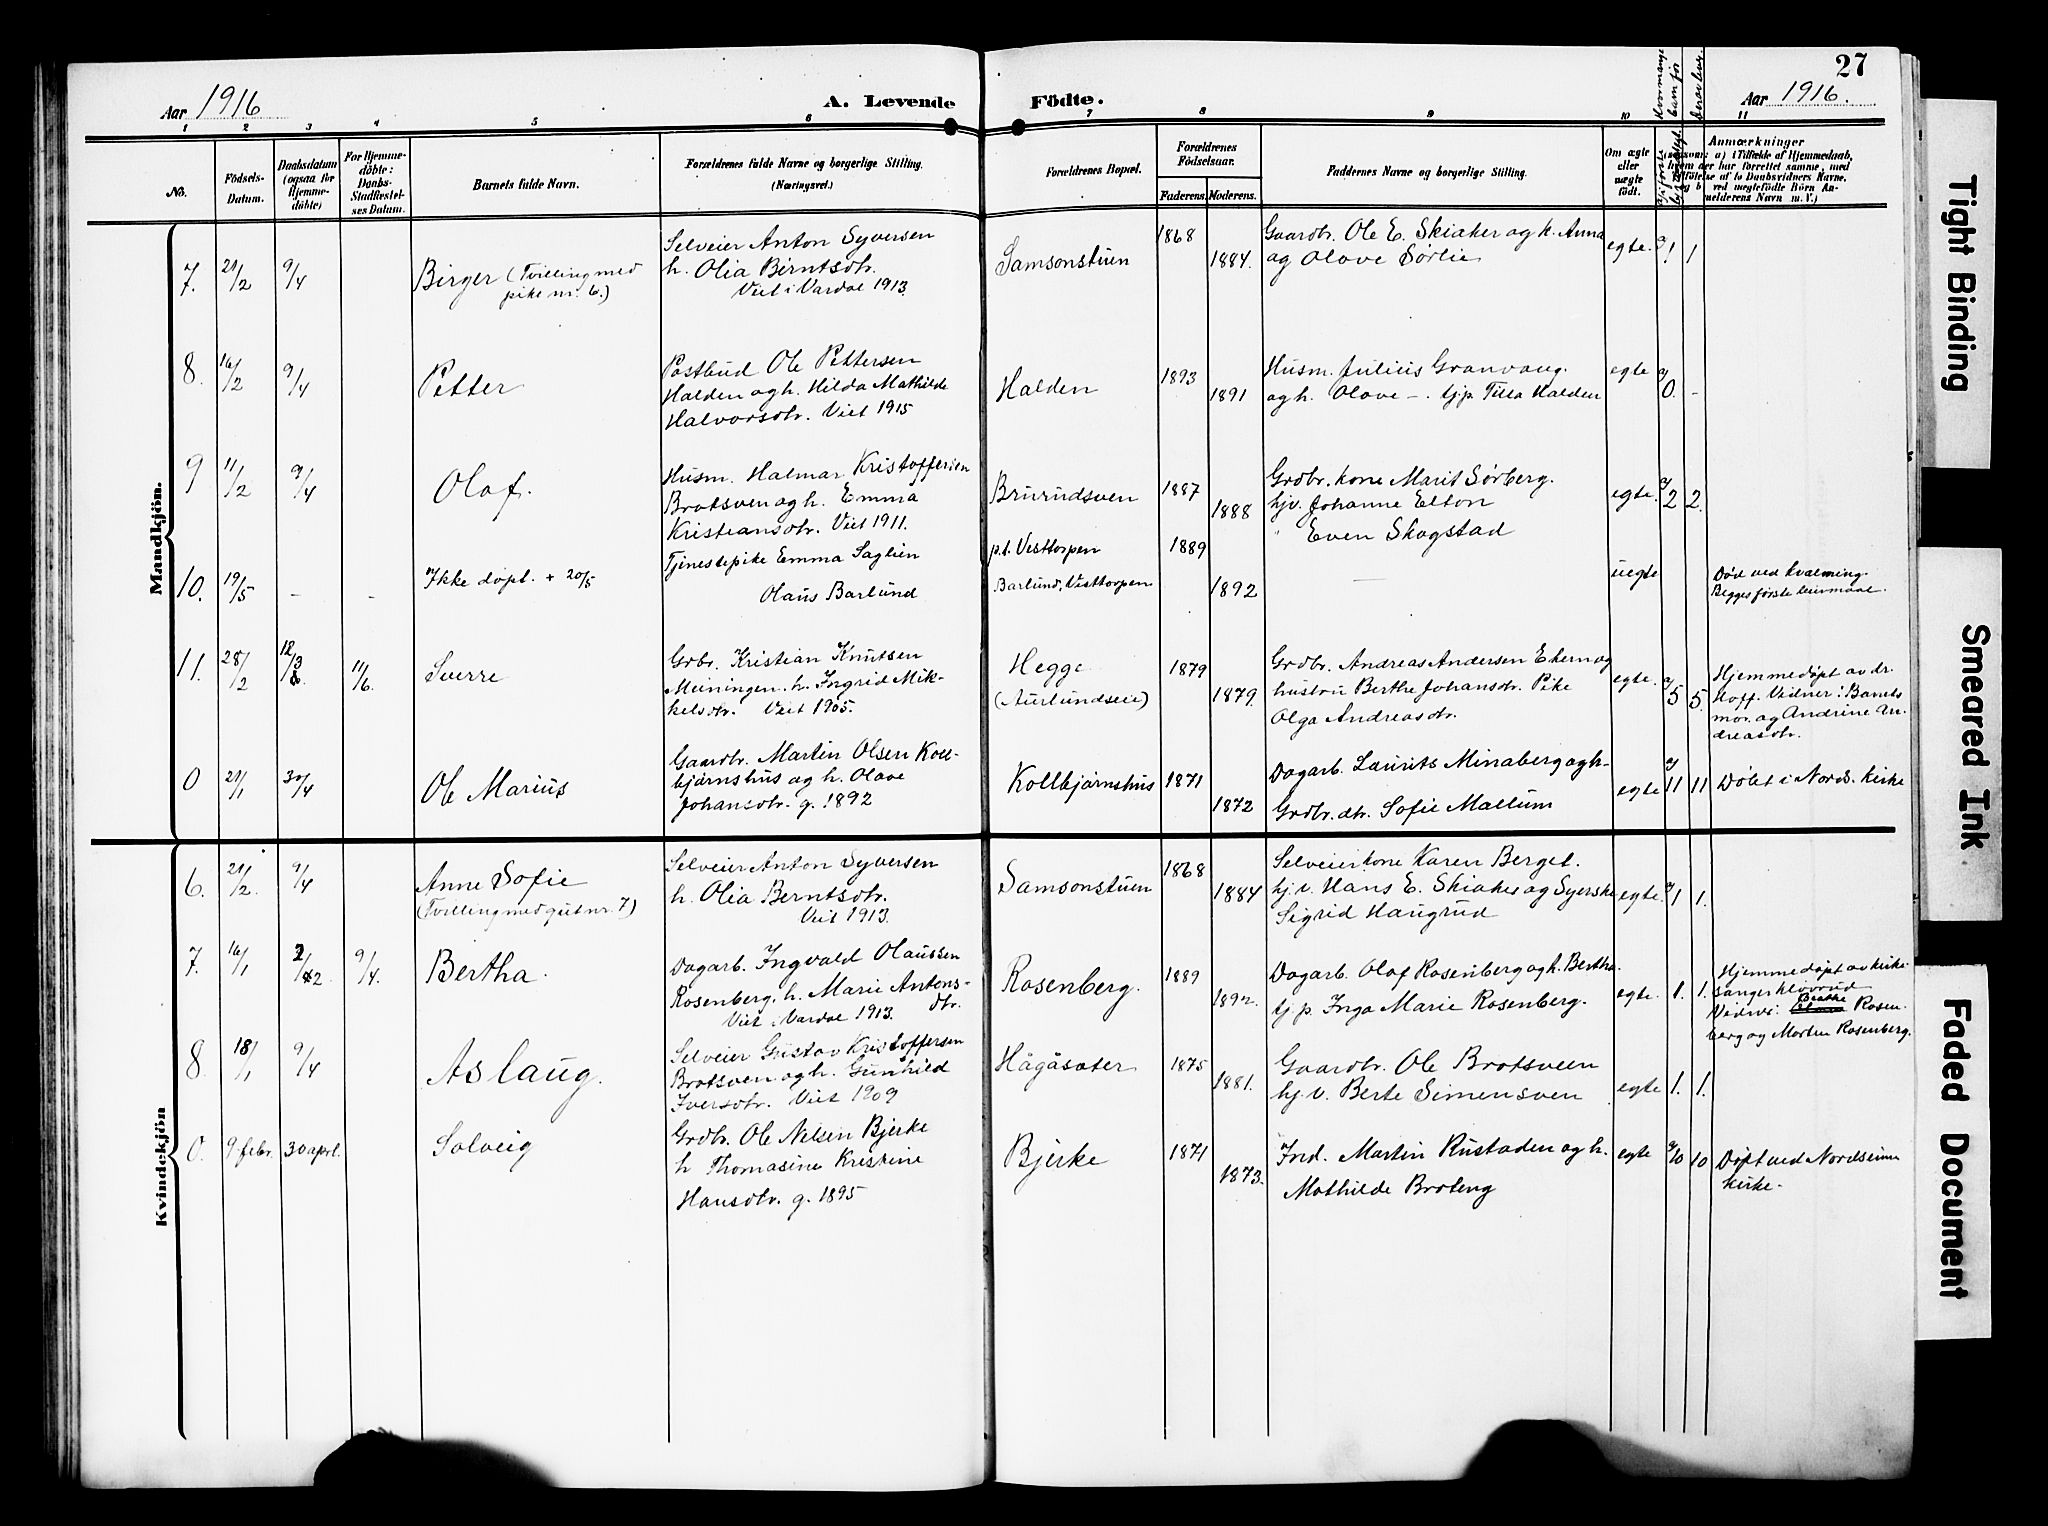 27
Aar 1916
A. Levende Födte.
Aar 1916.
1 2 3 4 5 6 7 8 9 10 11
No.
Födsels-
Datum.
Daabsdatum
(ogsaa for
Hjemme-
döbte)
For Hjemme-
döbte:
Daabs-
Stadfæstel-
ses Datum.
Barnets fulde Navn.
Forældrenes fulde Navne og borgerlige Stilling.
(Næringsvei.)
Forældrenes Bopæl.
Forældrenes
Födselsaar.
Faderens. Moderens.
Faddernes Navne og borgerlige Stilling.
Om ægte
eller
uægte
født.
Anmærkninger
(saasom: a) i Tilfælde af Hjemmedaab,
hvem der har forrettet samme, med
Tilföielse af to Daabsvidners Navne,
og b) ved uægtefödte Börn An-
melderens Navn m. V.)
Mandkjön.
7. 21/2 9/4
Birger (Tvilling med
pike nr. 6.)
Selveier Anton Syversen
h. Olia Berntsdtr.
Viet i Vardal 1913.
Samsonstuen
1868
1884.
Gaardbr. Ole E. Skiaker og h. Anna
og Olave Sørlie
egte. 1 1
8. 16/2 9/4
Petter
Postbud Ole Pettersen
Halden og h. Hilda Mathilde
Halvorsdtr. Viet 1915
Halden
1893
1891
Husm. Julius Granvang.
og h. Olave —. tj.p. Tilla Halden
egte 0. -
9 11/2 9/4
Olaf.
Husm. Halmar Kristoffersen
Brotsven og h. Emma
Kristiansdtr. Viet 1911.
Brurudsven
1887
1888
Grdbr. kone Marit Sørberg.
hjv. Johanne Elton
" Even Skogstad
egte. 2 2.
10. 19/5 - -
Ikke døpt. + 20/5
Tjenestepike Emma Saglien
Olaus Barlund
p.t. Vesttorpen
Barlund, Vesttorpen
1889
1892
—
uegte
Død ved kvælning.
Begges første leiermaal.
11. 28/2 12/3 11/6.
Sverre
Grbr. Kristian Knutsen
Meiningen. h. Ingrid Mik-
kelsdtr. Viet 1905.
Hegge
(Aurlundseie)
1879
1879.
Grdbr. Andreas Andersen Ekern og
hustru Berthe Johansdtr. Pike
Olga Andreasdtr.
egte. 5 5.
Hjemmedøpt av dr.
Hoff. Vidner: Barnets
mor. og Andrine An-
dreasdtr.
0 21/1 30/4
Ole Marius
Gaardbr. Martin Olsen Koll-
bjørnshus og h. Olave
Johansdtr. g. 1892
Kollbjørnshus
1871
1872
Dagarb. Laurits Minaberg og h-
Grdbr. dtr. Sofie Mællum
egte 11 11
Døbt i Nords. kirke
Kvindekjön
6. 21/2. 9/4
Anne Sofie
(Tvilling med gut nr. 7)
Selveier Anton Syversen
h. Olia Berntsdtr.
Viet 1913.
Samsonstuen
1868
1884
Selveierkone Karen Berget.
hj.v. Hans E. Skiaker og Syerske
Sigrid Haugrud
egte. 1 1.
7. 16/1 2/2. 9/4.
Bertha.
Dagarb. Ingvald Olaussen
Rosenberg. h. Marie Antons-
dtr.
Viet i Vardal 1913.
Rosenberg.
1889
1892.
Dagarb. Olaf Rosenberg og h. Bertha.
tj. p. Inga Marie Rosenberg.
egte. 1. 1.
Hjemmedøpt av kirke-
sanger Kløvrud
Vidner: Berthe Rosen-
berg og Marten Rosenberg.
8. 18/1 9/4
Aslaug.
Selveier Gustav Kristoffersen
Brotsven og h. Gunhild
Iversdtr. Viet 1909
Hågåsæter
1875
1881.
Gaardbr. Ole Brotsveen
hj.v. Berte Simensven
egte 1. 1.
0. 9 febr. 30 april.
Solveig
Grdbr. Ole Nelsen Bjerke
h Thomasine Kristine
Hansdtr. g. 1895
Bjerke
1871
1873.
Ind. Martin Rustaden og h.
Mathilde Broteng
egte 10 10
Døpt ved Nordsinni
kirke.
Tight Binding
Smeared Ink
Faded Document